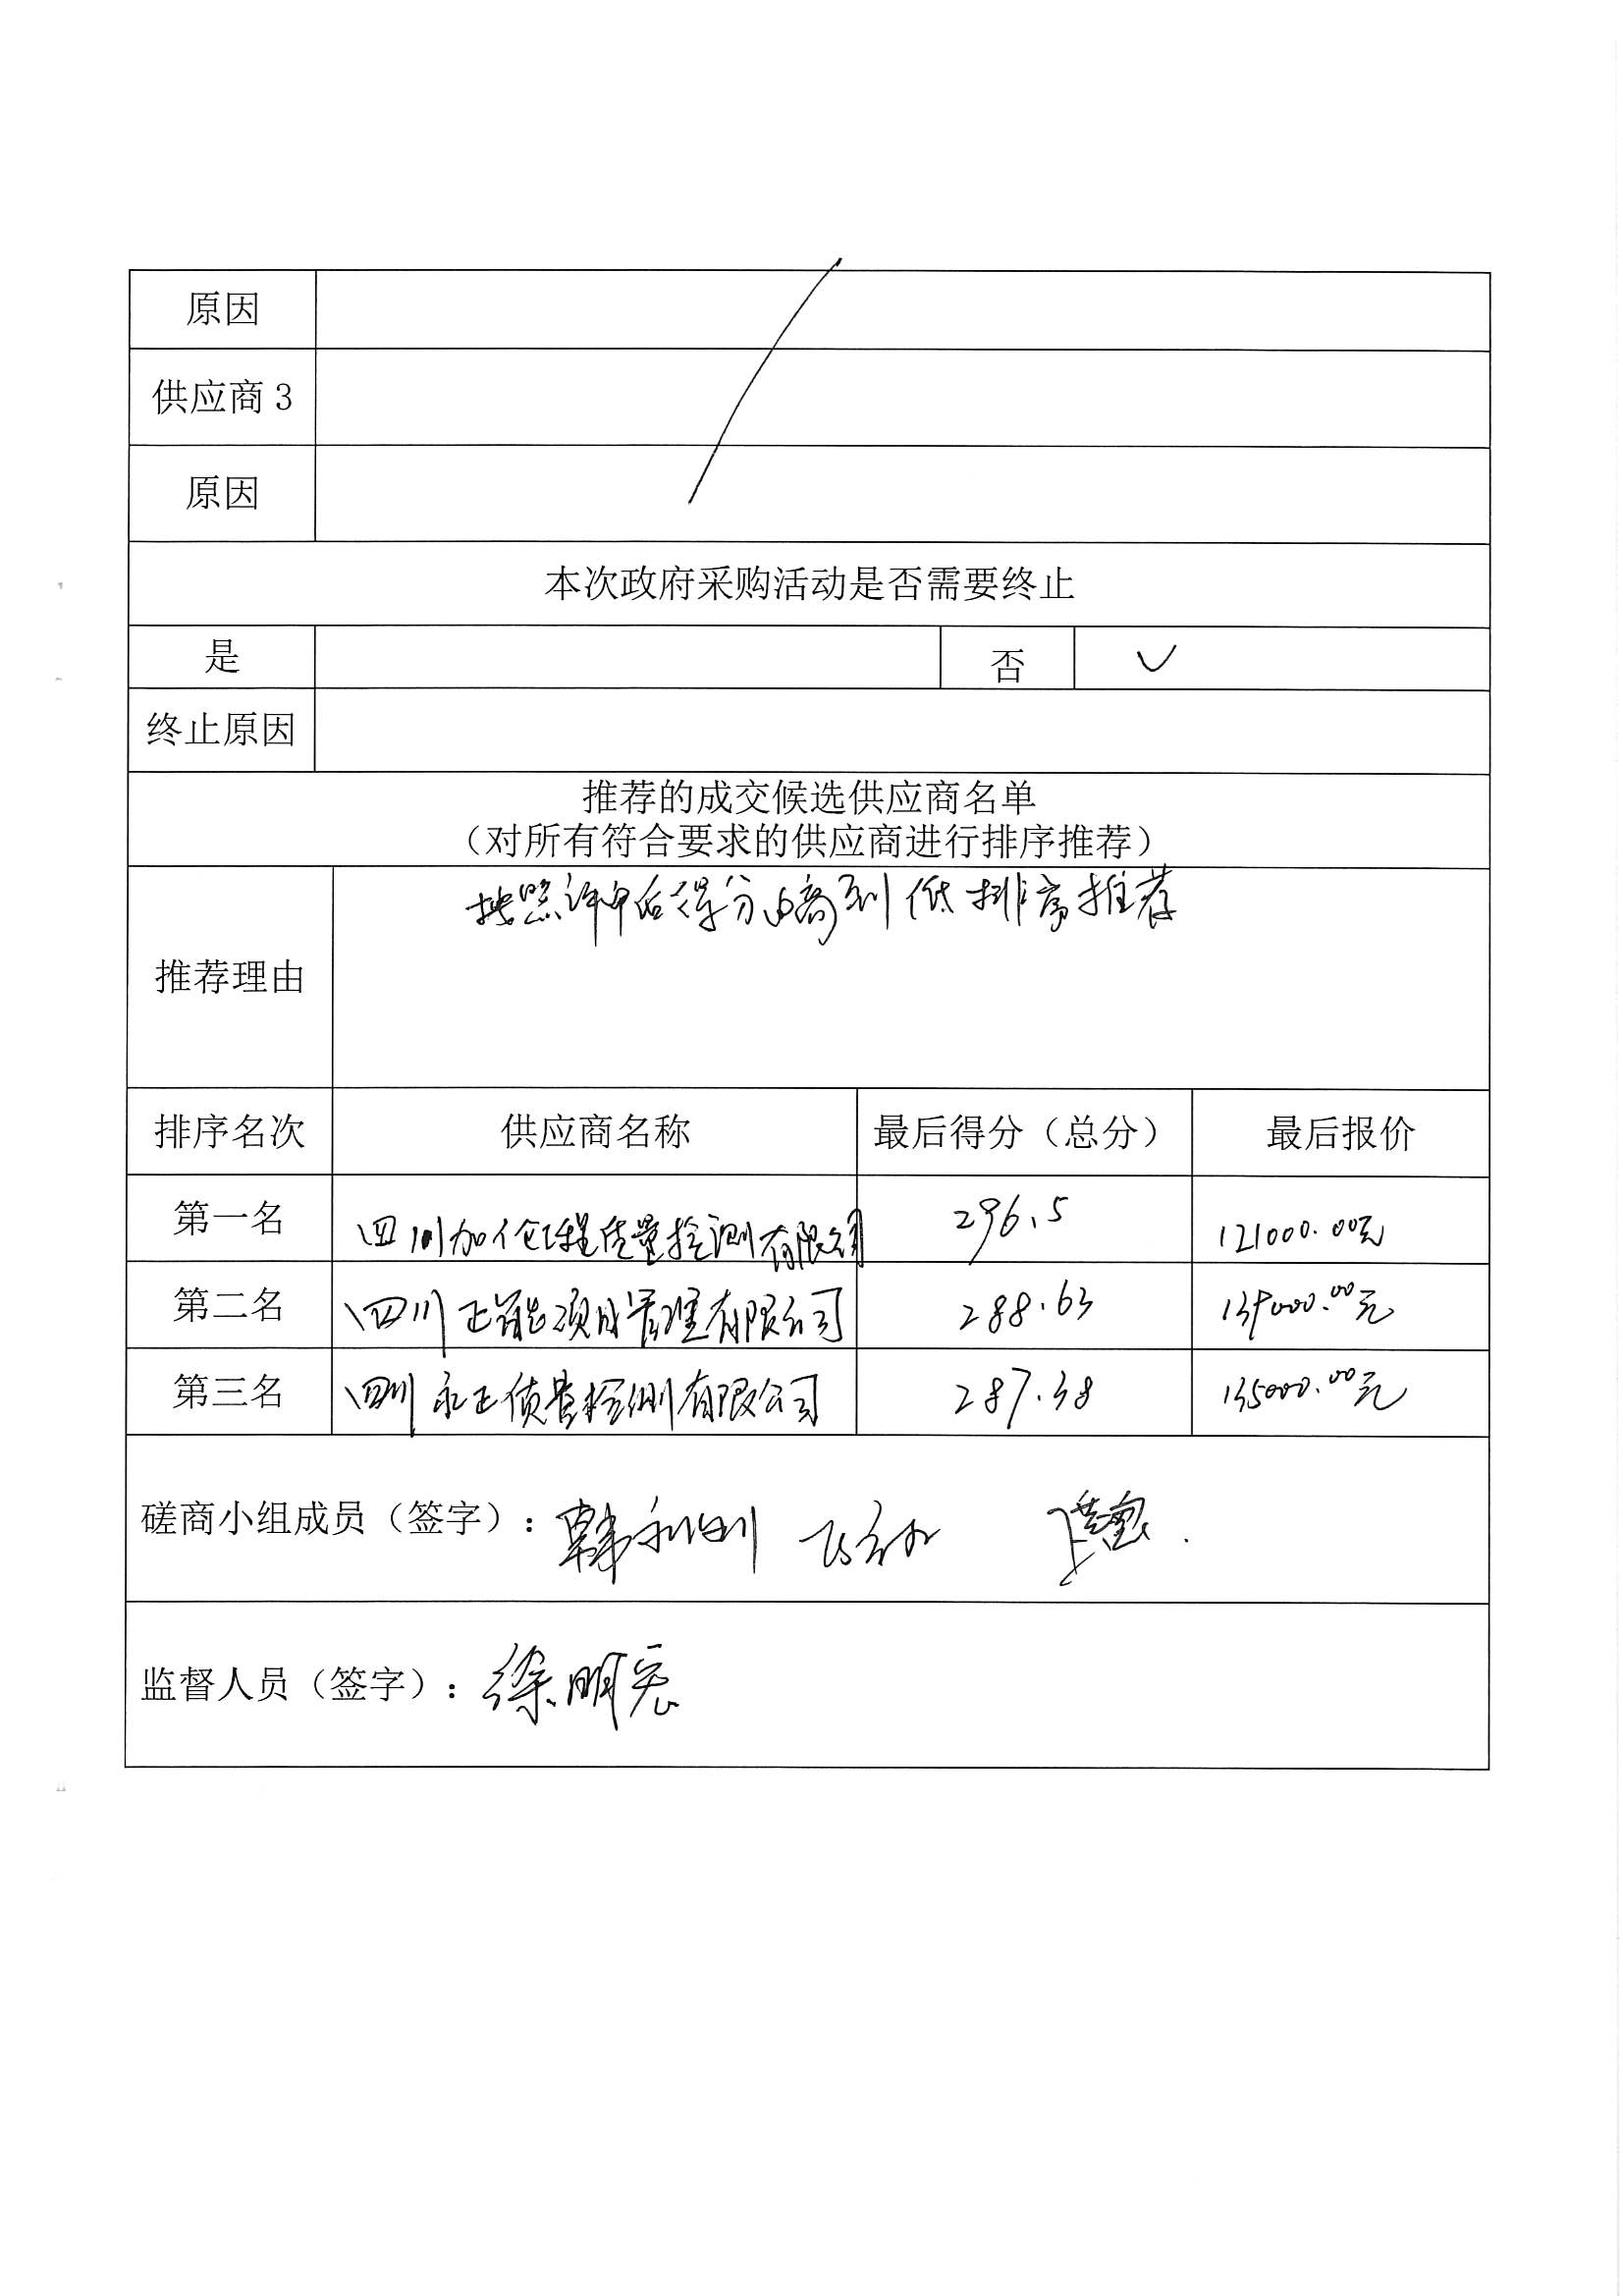 原因
供应商 3
原因
本次政府采购活动是否需要终止
是 否 ✓
终止原因
推荐的成交候选供应商名单
（对所有符合要求的供应商进行排序推荐）
按照评审后得分由高到低排序推荐
推荐理由
排序名次 供应商名称 最后得分（总分） 最后报价
第一名 四川加伦工程质量检测有限公司 296.5 121000.00元
第二名 四川正能项目管理有限公司 288.63 139000.00元
第三名 四川永正质量检测有限公司 287.38 135000.00元
磋商小组成员（签字）：
监督人员（签字）：徐明宏